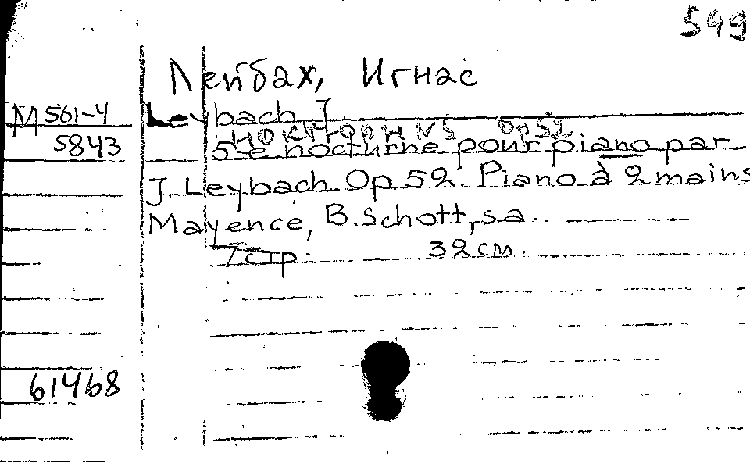 549
Лейбах, Игнас
М 561-4 Leybach J
5843 Ноктюрн №5 Op 52
5-e nocturne pour piano par
J. Leybach. Op 52. Piano à 2 mains
Mayence, B. Schott, s.a.
7 стр. 32 см.
61468